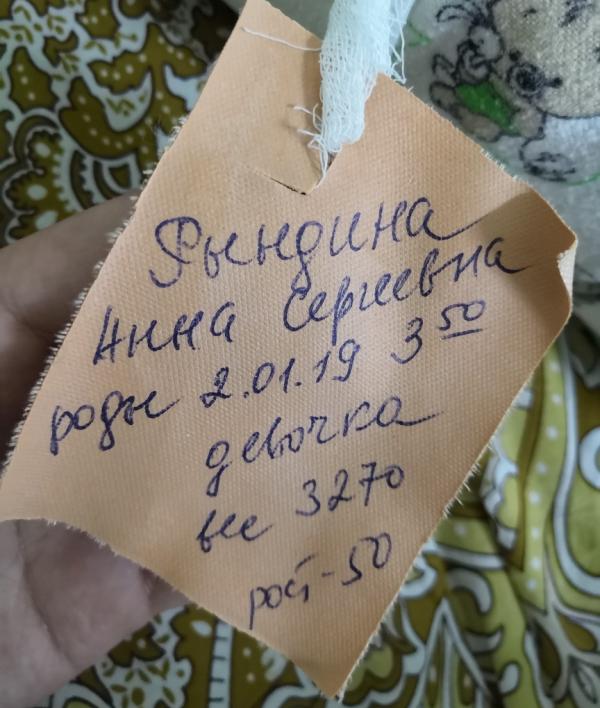 Рындина
Анна Сергеевна
роды 2.01.19 3 50
девочка
вес 3270
рост-50